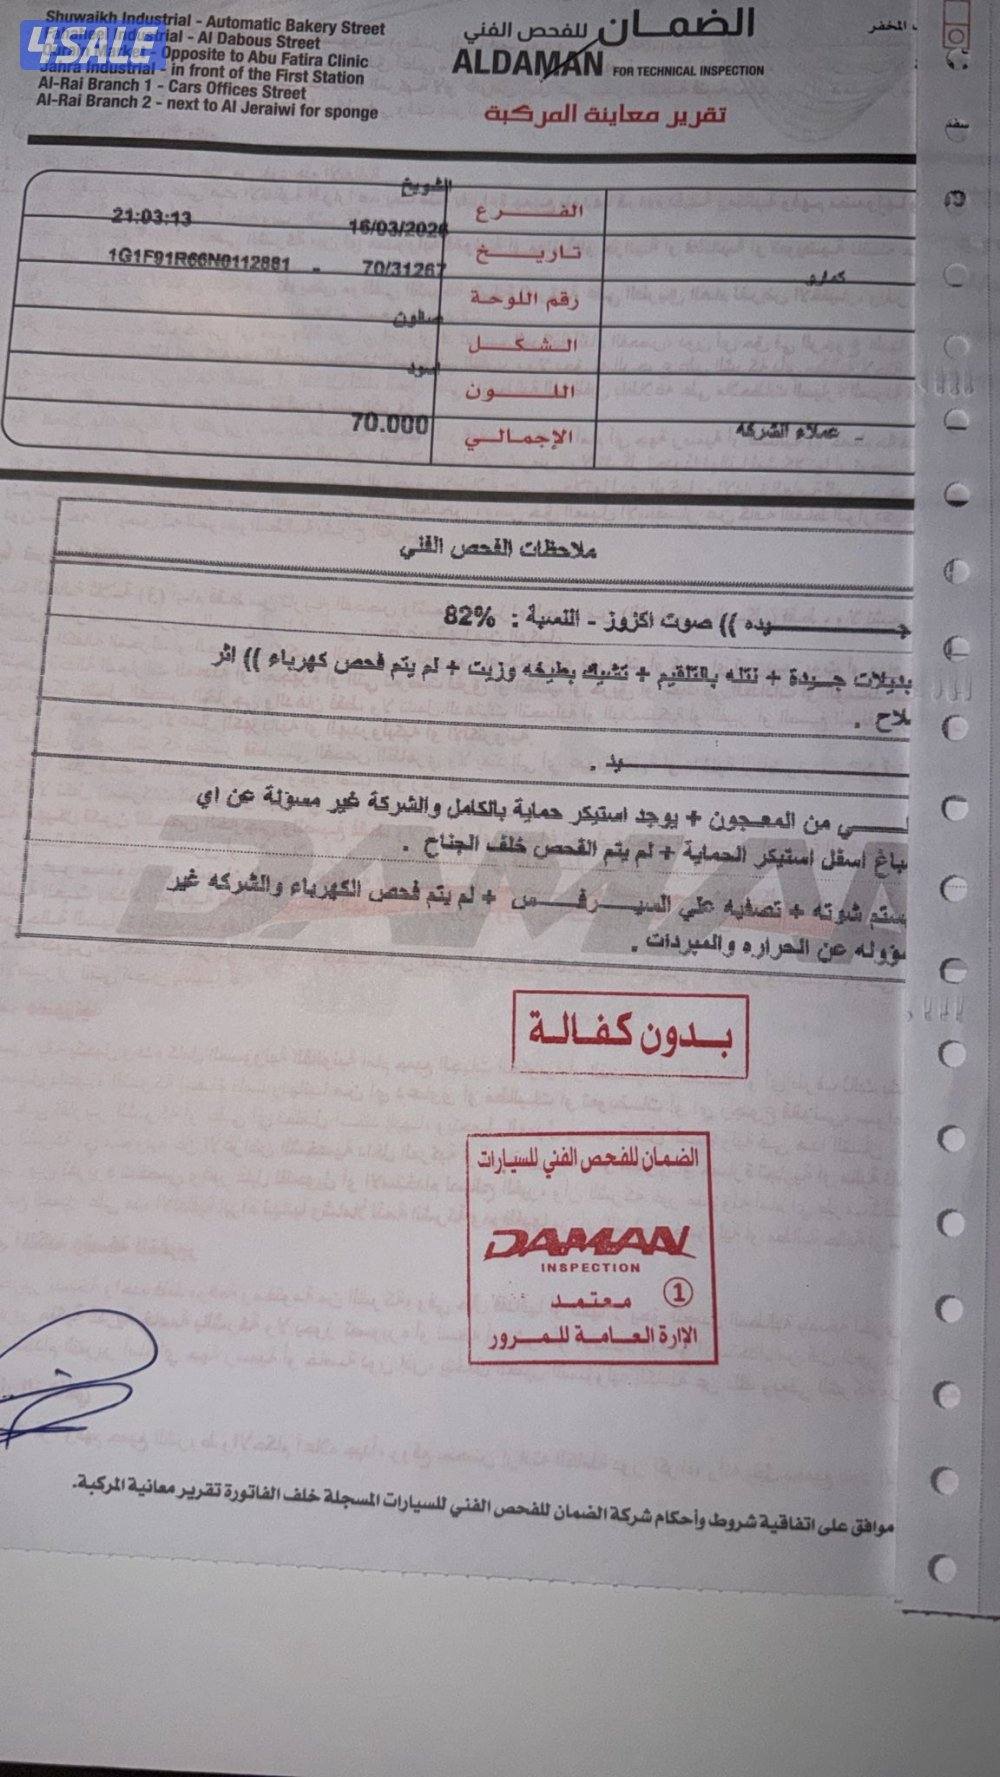 Shuwaikh Industrial - Automatic Bakery Street
Industrial - Al Dabous Street
Market - Opposite to Abu Fatira Clinic
Jahra Industrial - in front of the First Station
Al-Rai Branch 1 - Cars Offices Street
Al-Rai Branch 2 - next to Al Jeraiwi for sponge
4SALE
الضمان للفحص الفني
ALDAMAN FOR TECHNICAL INSPECTION
تقرير معاينة المركبة
الفرع الشويخ
تاريخ 16/03/2026 21:03:13
رقم اللوحة 70/31267 - 1G1F91R66N0112881
كمارو
الشكل صالون
اللون اسود
الإجمالي 70.000
- عملاء الشركه
ملاحظات الفحص الفني
جـيده )) صوت اكزوز - النسبة : 82%
بديلات جيدة + نتله بالتلقيم + تشيك بطيخه وزيت + لم يتم فحص كهرباء )) اثر
لاح .
يد .
ي من المعجون + يوجد استيكر حماية بالكامل والشركة غير مسؤلة عن اي
باغ اسفل استيكر الحماية + لم يتم الفحص خلف الجناح .
ستم شوته + تصفيه علي السيرفس + لم يتم فحص الكهرباء والشركه غير
ؤوله عن الحراره والمبردات .
DAMAN
بدون كفالة
الضمان للفحص الفني للسيارات
DAMAN
INSPECTION
معتمد 1
الإارة العامة للمرور
موافق على اتفاقية شروط وأحكام شركة الضمان للفحص الفني للسيارات المسجلة خلف الفاتورة تقرير معانية المركبة.